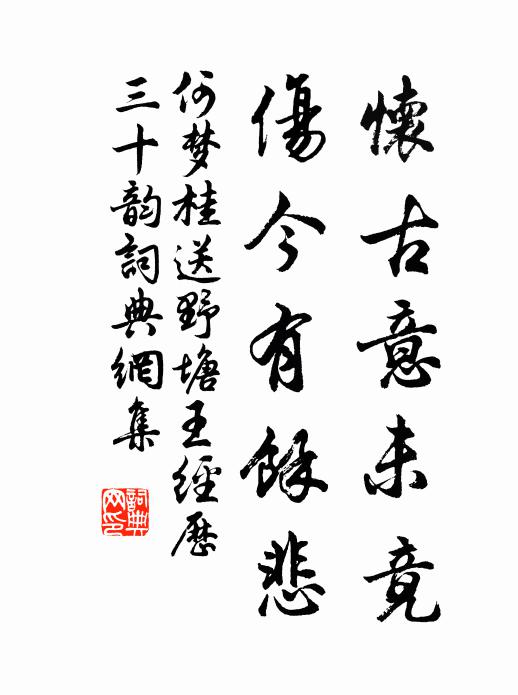 懷古意未竟
傷今有餘悲
何梦桂送野塘王經歷
三十韵詞典網集
詞典网印